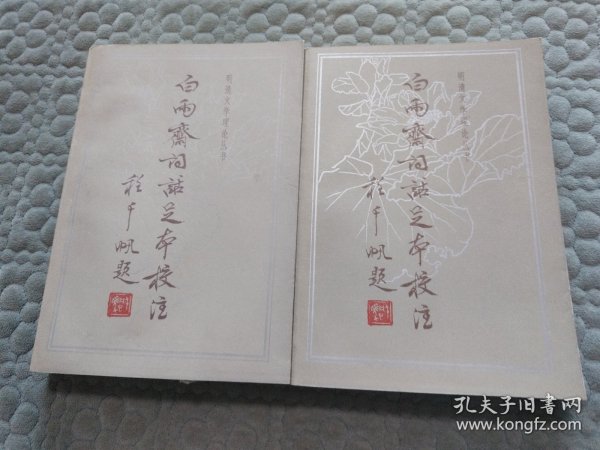 明清文学理论丛书
白雨齋詞話足本校注
程千帆題
明清文学理论丛书
白雨齋詞話足本校注
程千帆題
孔夫子旧书网
www.kongfz.com